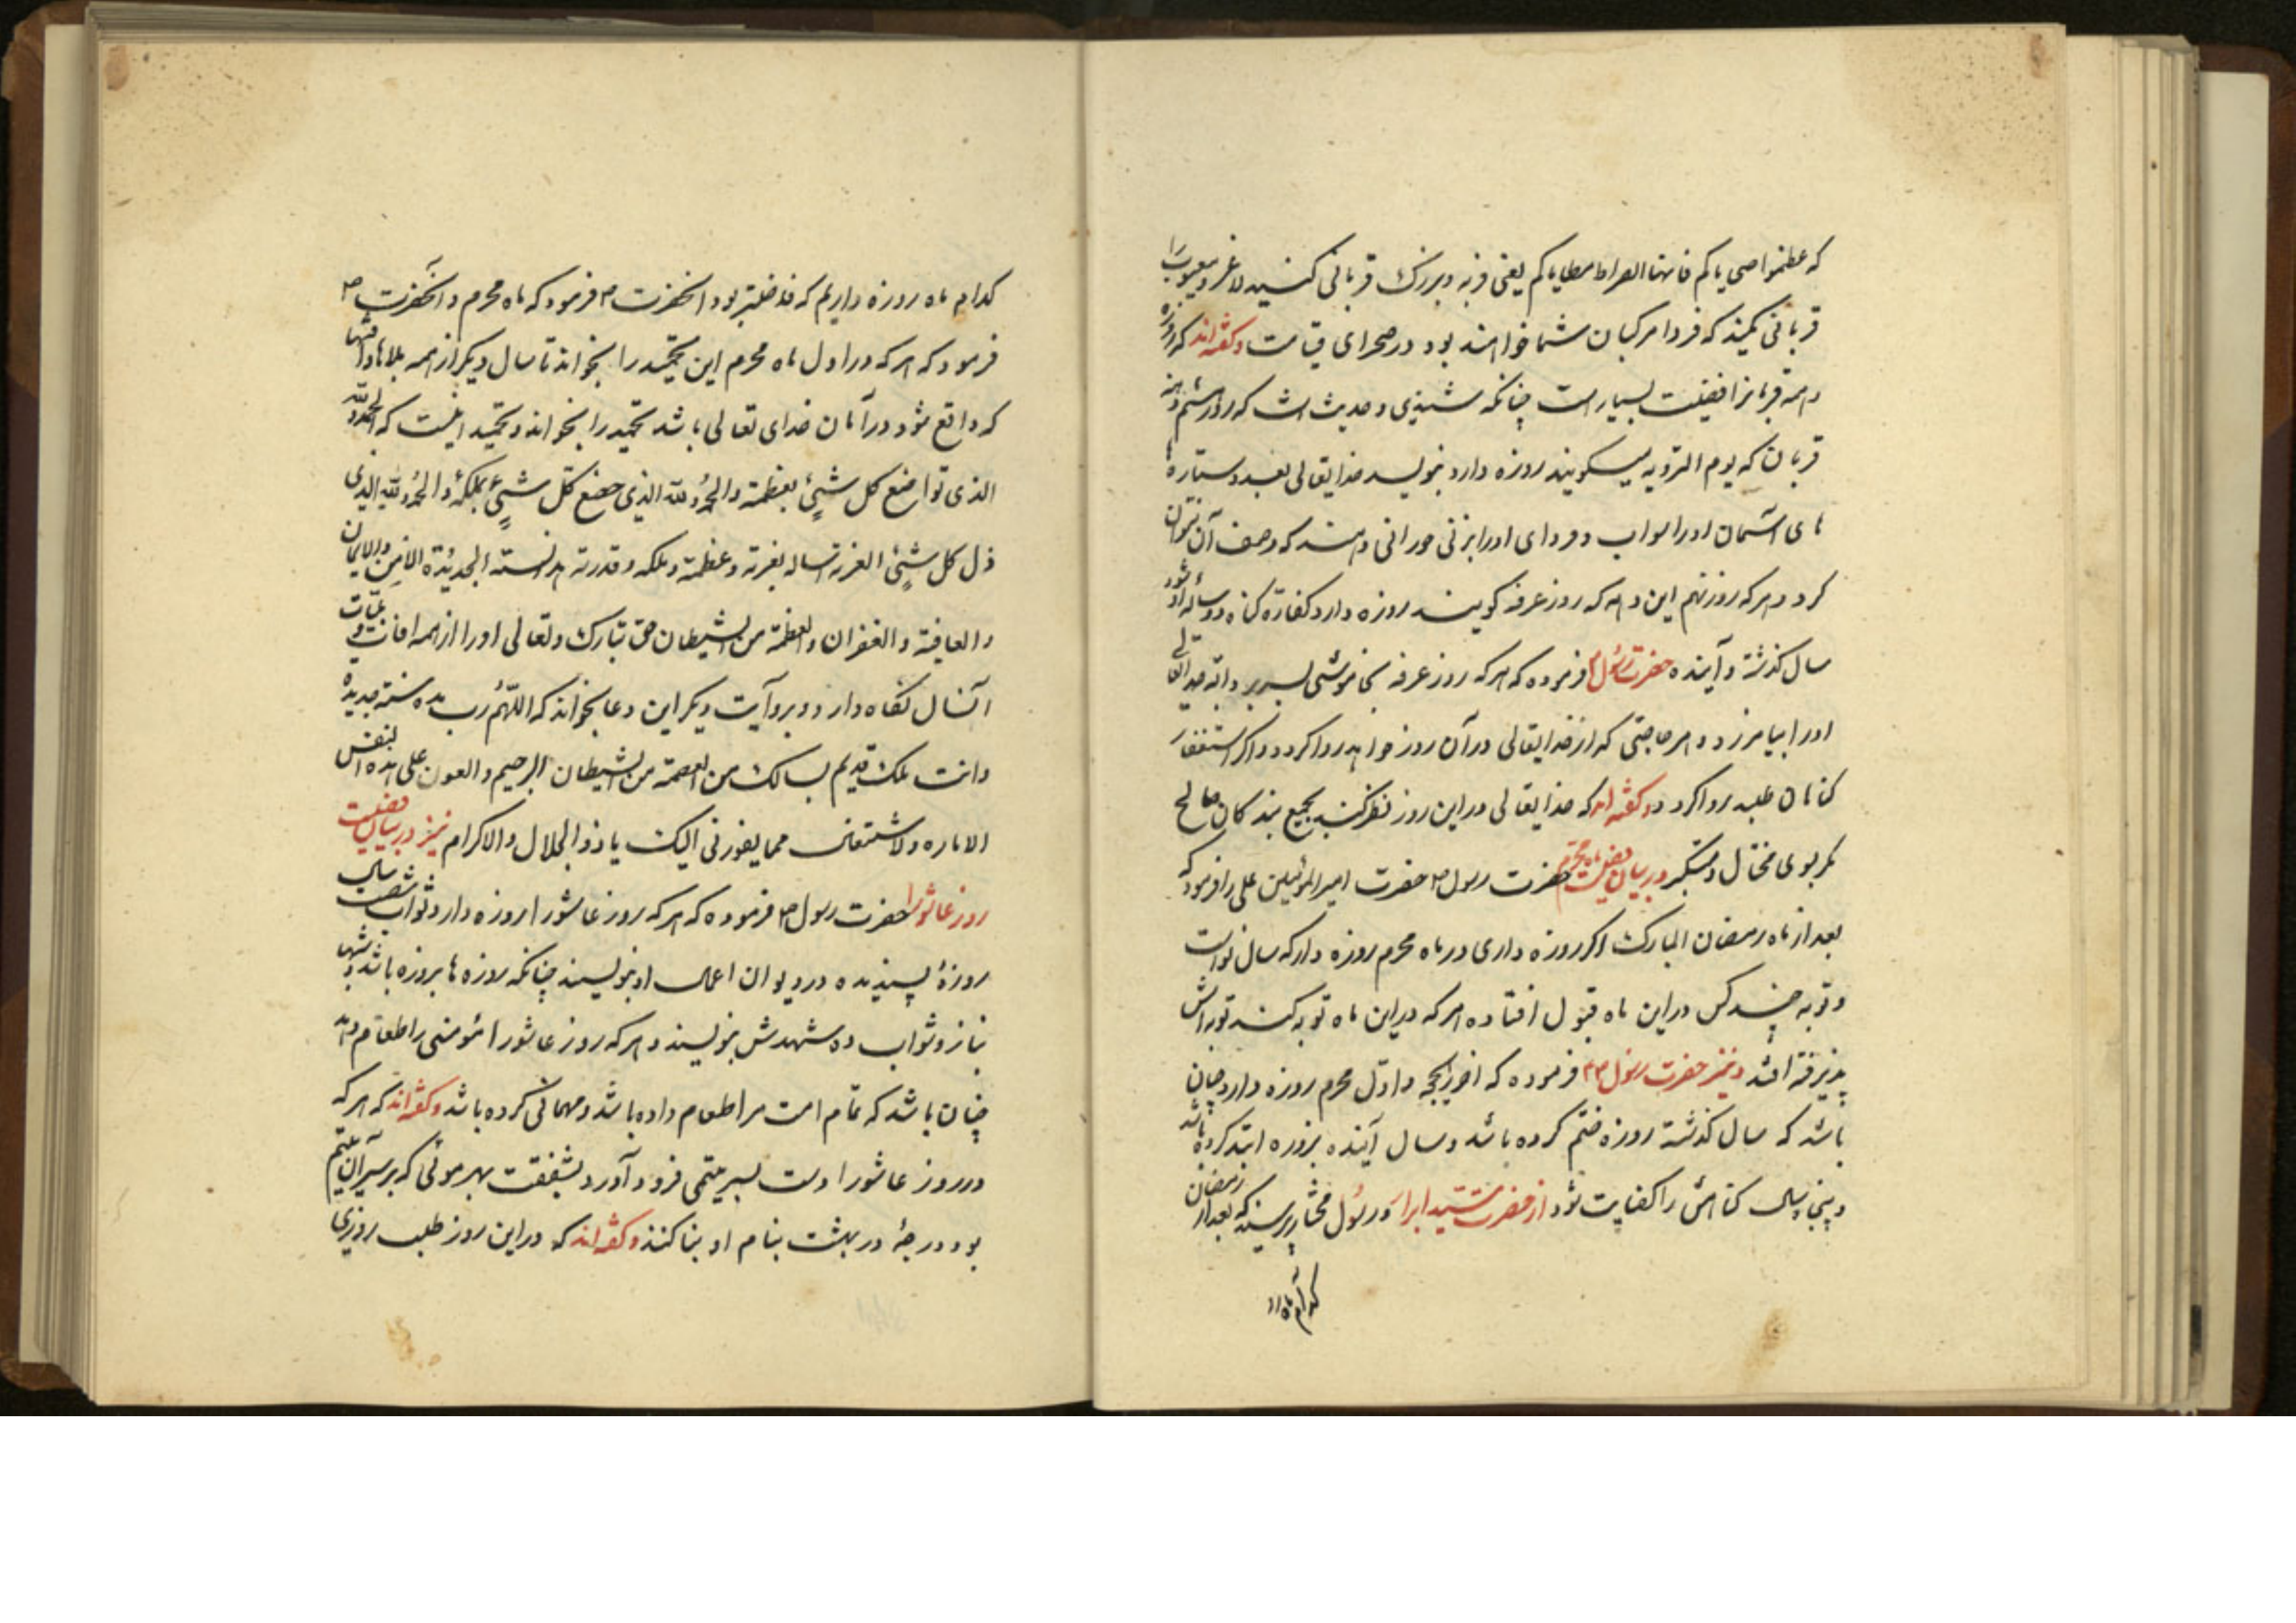 که عظموا ضحایاکم فانها الصراط مطایاکم یعنی فربه و بزرک قربانی کنید لاغر و معیوب را
قربانی مکنید که فردا مرکبان شما خواهند بود در صحرای قیامت و کفته‌اند که روزه
دهه قربانرا فضیلت بسیار است چنانکه شنیدی و حدیث است که روز هشتم ده
قربان که یوم الترویه میکویند روزه دارد بنویسد خدایتعالی بعدد ستاره
های آسمان او را ثواب و فردای او را بزنی حورانی دهند که وصف آن نتوان
کرد و هر که روز نهم این دهه که روز عرفه کویند روزه دارد کفارة کناه دو ساله او شود
سال کذشته و آینده حضرت رسول فرموده که هر که روز عرفه بخاموشی بسر برد البته خدایتعالی
او را بیامرزد و هر حاجتی که از خدایتعالی در آن روز خواهد روا کردد و اکر استغفار
کناهان طلبد روا کردد و کفته‌اند که خدایتعالی در این روز نظر کند بجمیع بندکان صالح
مکر بوی مختال و متکبر در بیان فضیلت ماه محرم حضرت رسول ص حضرت امیرالمؤمنین علی را فرمود که
بعد از ماه رمضان المبارک اکر روزه داری در ماه محرم روزه دار که سال نو است
و توبه چند کس در این ماه قبول افتاده هر که در این ماه توبه کند توبه‌اش
پذیرفته افتد و نیز حضرت رسول ص فرموده که آخر ذیحجه و اول محرم روزه دارد چنان
باشد که سال کذشته روزه ختم کرده باشد و سال آینده بروزه ابتدا کرده باشد
و پنج سال کناهش را کفایت شود از حضرت سید ابرار و رسول مختار پرسیدند که بعد از رمضان
کدام ماه
کدام ماه روزه داریم که فاضلتر بود آنحضرت ص فرمود که ماه محرم و آنحضرت ص
فرمود که هر که در اول ماه محرم این تحمید را بخواند تا سال دیکر از همه بلاها و آفتها
که واقع شود در امان خدای تعالی باشد تحمید را بخواند و تحمید اینست که الحمد لله
الذی تواضع کل شیئ بعظمة والحمد لله الذی خضع کل شیئ بملکه والحمد لله الذی
ذل کل شیئ العزته اساله بعزته و عظمة و ملکه و قدرته هذالسنة الجدیدة الامن والایمان
والعافیة والغفران والعظمة من الشیطان حق تبارک و تعالی او را از همه افات و بلیات
آنسال نکاه دارد و بروآیت دیکر این دعا بخواند که اللهم رب هذه سنة جدیدة
و انت ملک قدیم اسالک من العصمة من الشیطان الرجیم والعون علی هذه النفس
الاماره والاشتغال مما یقربنی الیک یا ذو الجلال والاکرام نیز در بیان فضیلت
روز عاشورا حضرت رسول ص فرموده که هر که روز عاشورا روزه دارد ثواب شصت سال
روزهٔ پسندیده در دیوان اعمال او بنویسند چنانکه روزه‌ها بروزه باشد و شبها
بنماز و ثواب ده شهیدش بنویسند و هر که روز عاشورا مؤمنی را طعام دهد
چنان باشد که تمام امت مرا طعام داده باشد و مهمانی کرده باشد و کفته‌اند که هر که
در روز عاشورا دست بسر یتیمی فرود آورد بشفقت بهر موئی که بر سر آن یتیم
بود درجهٔ در بهشت بنام او بنا کنند و کفته‌اند که در این روز طلب روزی